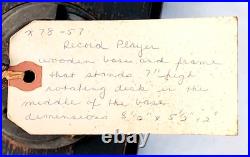 x 78-57
Record Player
wooden base and frame
that stands 7" high
rotating disk in the
middle of the base
dimensions 8 1/2" x 5 3/4" x 2"